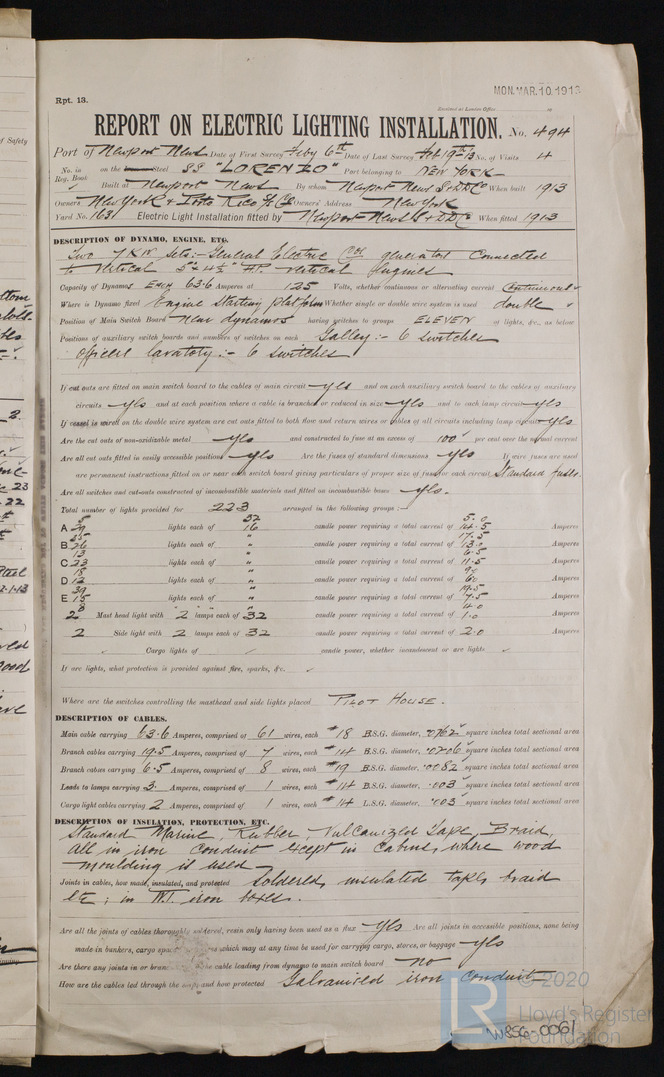 MON. MAR. 10. 1913
Rpt. 13.
Received at London Office
REPORT ON ELECTRIC LIGHTING INSTALLATION. No. 494
Port of Newport News Date of First Survey Feby 6th Date of Last Survey Feb 19th 13 No. of Visits 4
No. in Reg. Book on the Steel SS "LORENZO" Port belonging to NEW YORK
Built at Newport News By whom Newport News S & D D Co When built 1913
Owners New York & Porto Rico S/S Co Owners' Address New York
Yard No. 163 Electric Light Installation fitted by Newport News S & D D Co When fitted 1913
DESCRIPTION OF DYNAMO, ENGINE, ETC.
Two 7 KW Sets:- General Electric Coy generators Connected
to Vertical 5" x 4½" H.P. Vertical Engines
Capacity of Dynamos Each 63.6 Amperes at 125 Volts, whether continuous or alternating current Continuous
Where is Dynamo fixed Engine Starting platform Whether single or double wire system is used double
Position of Main Switch Board Near dynamos having switches to groups ELEVEN of lights, &c., as below
Positions of auxiliary switch boards and numbers of switches on each Galley:- 6 switches
Officers lavatory:- 6 switches
If cut outs are fitted on main switch board to the cables of main circuit yes and on each auxiliary switch board to the cables of auxiliary
circuits yes and at each position where a cable is branched or reduced in size yes and to each lamp circuit yes
If vessel is wired on the double wire system are cut outs fitted to both flow and return wires or cables of all circuits including lamp circuits yes
Are the cut outs of non-oxidizable metal yes and constructed to fuse at an excess of 100 per cent over the normal current
Are all cut outs fitted in easily accessible positions yes Are the fuses of standard dimensions yes If wire fuses are used
are permanent instructions fitted on or near each switch board giving particulars of proper size of fuse for each circuit Standard fuses.
Are all switches and cut-outs constructed of incombustible materials and fitted on incombustible bases yes.
Total number of lights provided for 223 arranged in the following groups:—
5 32 5.0
A 29 lights each of 16 candle power requiring a total current of 14.5 Amperes
35 " 17.5
B 26 lights each of " candle power requiring a total current of 13.0 Amperes
13 " 6.5
C 23 lights each of " candle power requiring a total current of 11.5 Amperes
18 " 9.
D 12 lights each of " candle power requiring a total current of 6. Amperes
39 " 19.5
E 15 lights each of " candle power requiring a total current of 7.5 Amperes
8 " 4.0
2 Mast head light with 2 lamps each of 32 candle power requiring a total current of 1.0 Amperes
2 Side light with 2 lamps each of 32 candle power requiring a total current of 2.0 Amperes
Cargo lights of candle power, whether incandescent or arc lights
If arc lights, what protection is provided against fire, sparks, &c.
Where are the switches controlling the masthead and side lights placed PILOT HOUSE.
DESCRIPTION OF CABLES.
Main cable carrying 63.6 Amperes, comprised of 61 wires, each #18 B.S.G. diameter, .0762 square inches total sectional area
Branch cables carrying 19.5 Amperes, comprised of 7 wires, each #14 B.S.G. diameter, .0206 square inches total sectional area
Branch cables carrying 6.5 Amperes, comprised of 8 wires, each #19 B.S.G. diameter, .0082 square inches total sectional area
Leads to lamps carrying 3. Amperes, comprised of 1 wires, each #14 B.S.G. diameter, .003 square inches total sectional area
Cargo light cables carrying 2 Amperes, comprised of 1 wires, each #14 L.S.G. diameter, .003 square inches total sectional area
DESCRIPTION OF INSULATION, PROTECTION, ETC.
Standard Marine, Rubber, Vulcanized Tape, Braid,
all in iron conduit except in Cabins, where wood
moulding is used
Joints in cables, how made, insulated, and protected Soldered, insulated tape, braid
etc; in W.T. iron boxes.
Are all the joints of cables thoroughly soldered, resin only having been used as a flux yes Are all joints in accessible positions, none being
made in bunkers, cargo spaces which may at any time be used for carrying cargo, stores, or baggage yes
Are there any joints in or branches cable leading from dynamo to main switch board no
How are the cables led through the ship, and how protected Galvanized iron conduit
© 2020
Lloyd's Register
Foundation
W856-0061